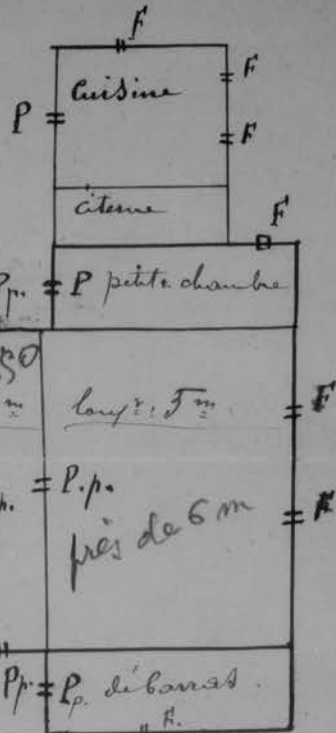 F
cuisine F
P
F
citerne
F
P.p. P petite chambre
50
m longr: 5 m F
P.p.
près de 6 m F
P.p. P.p. débarras.
F.